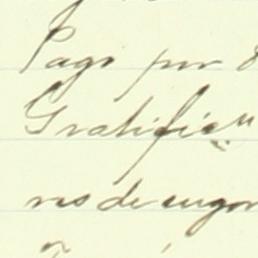 Pago por
Gratific
res de engo